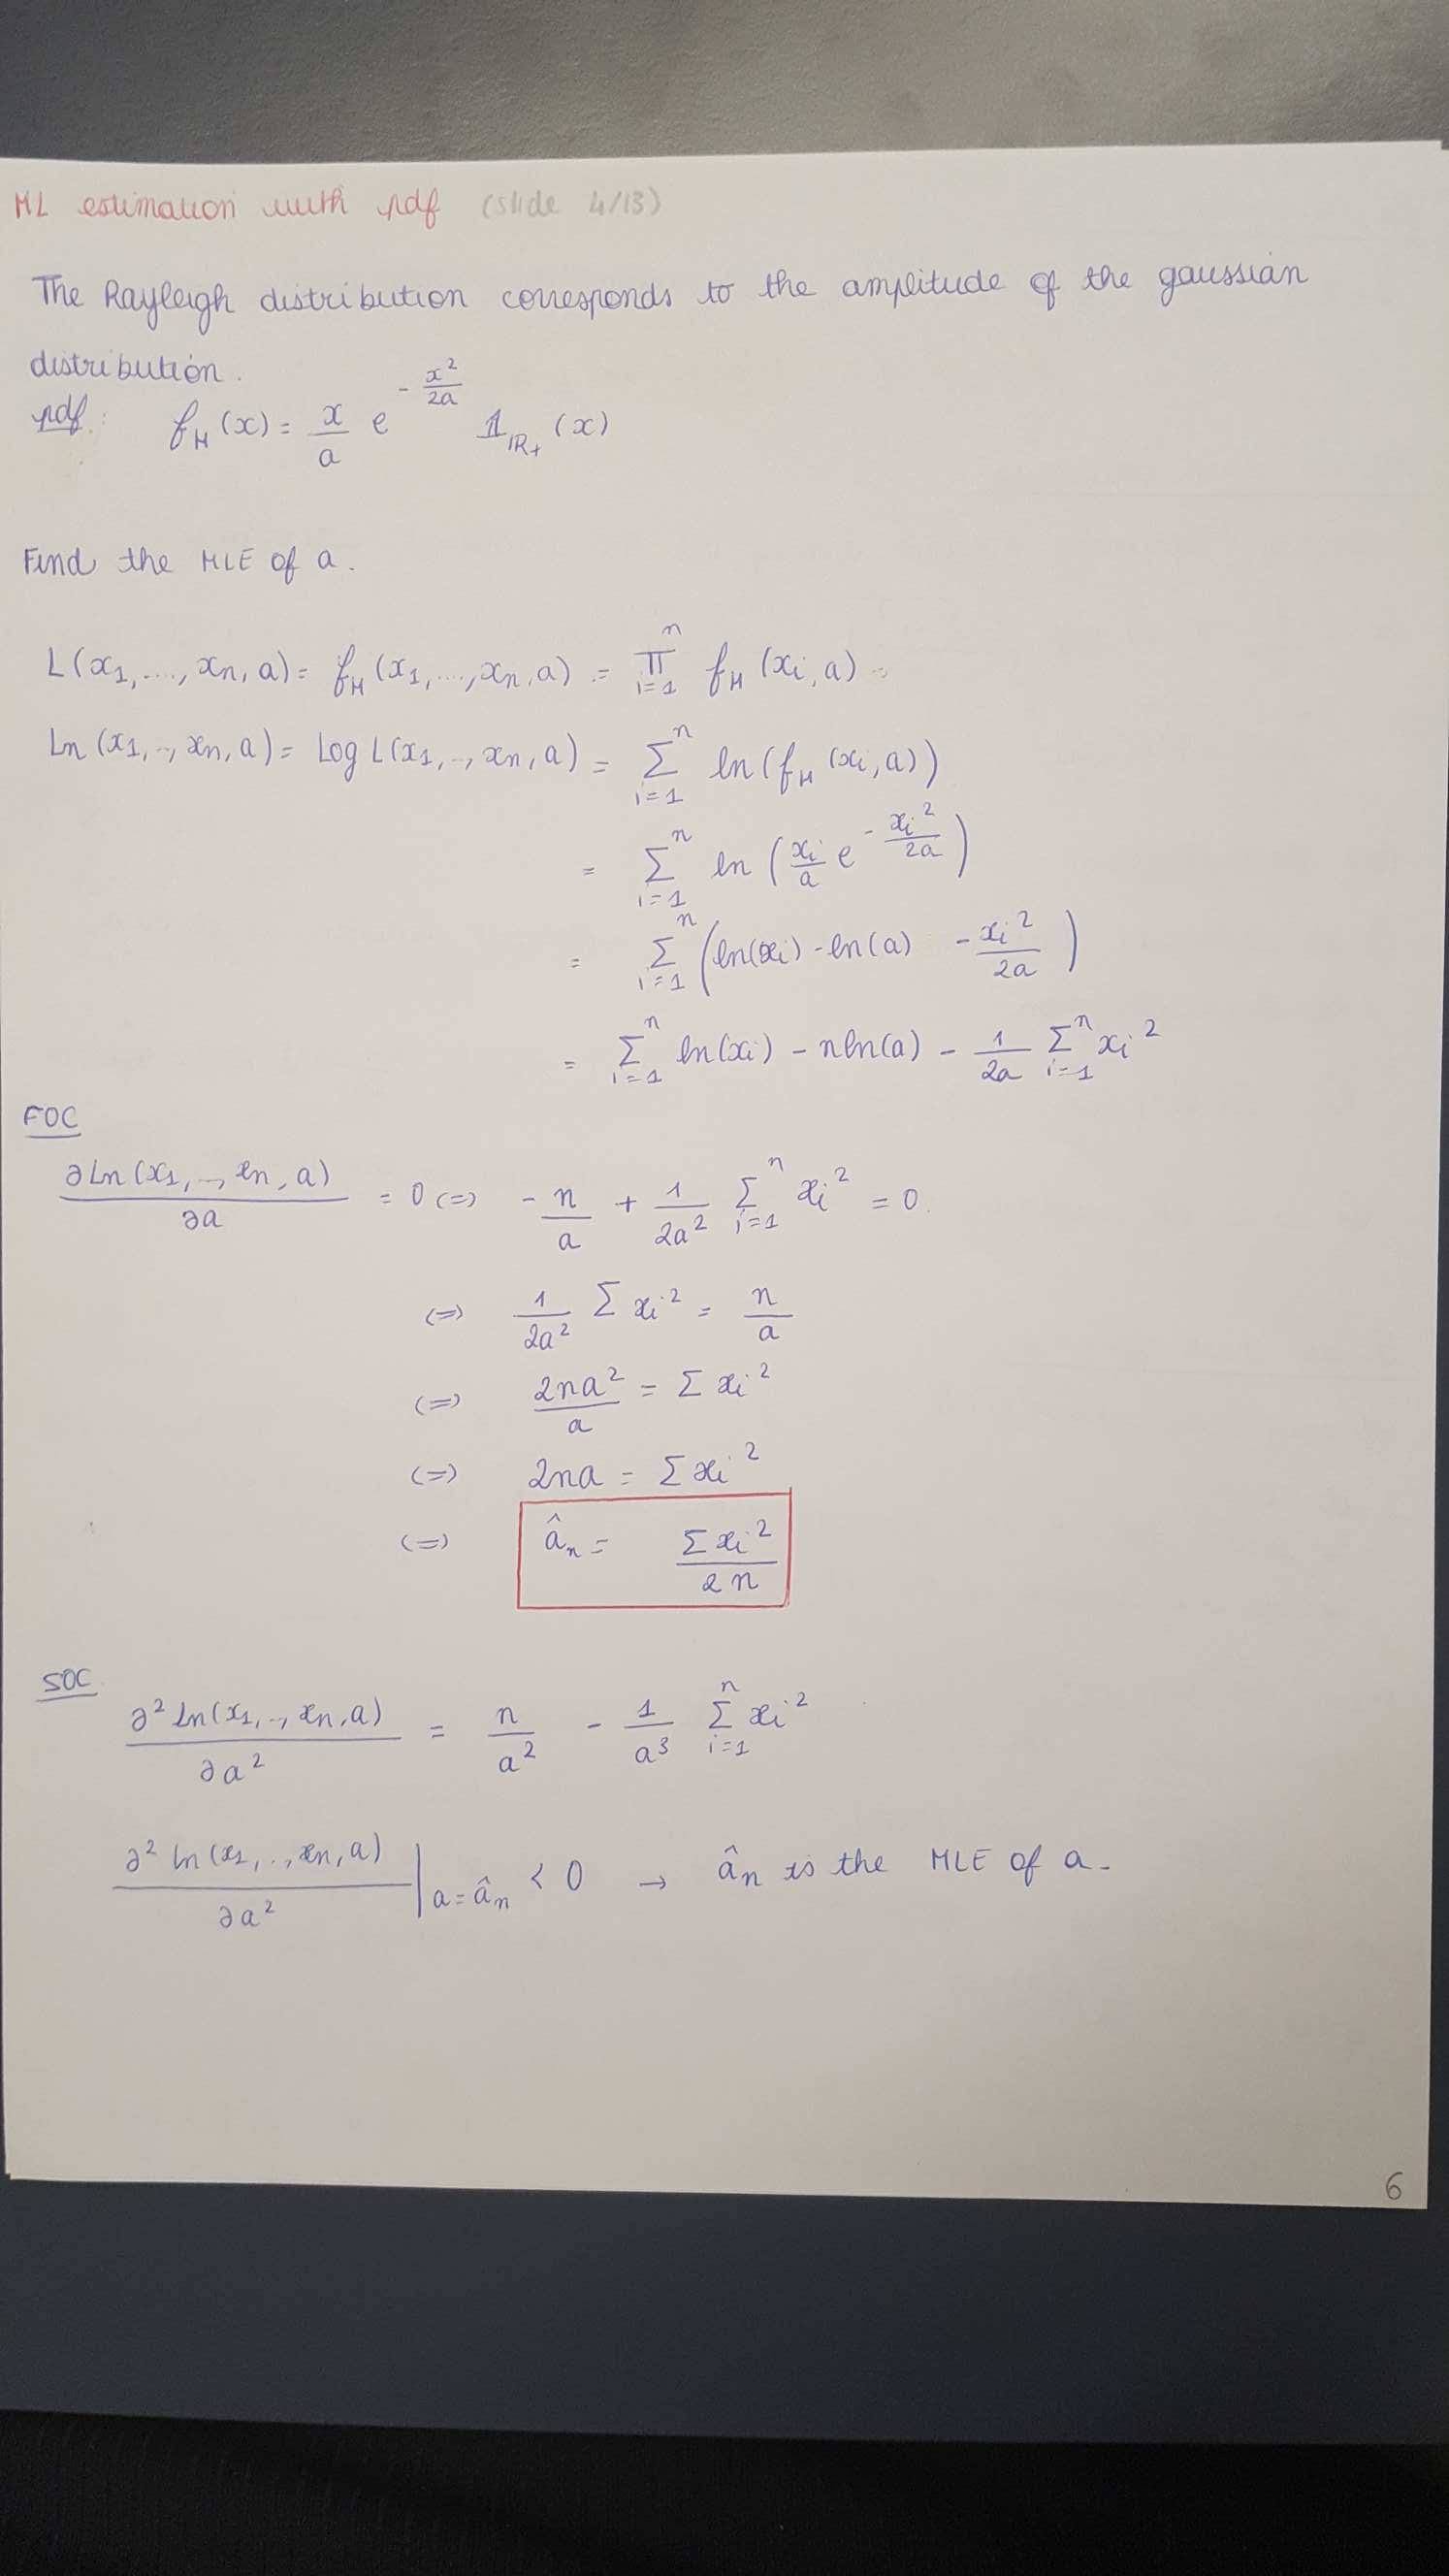 ML estimation with pdf (slide 4/13)
The Rayleigh distribution corresponds to the amplitude of the gaussian
distribution.
pdf: f_H (x) = x/a e^(-x²/2a) 𝟙_ℝ+ (x)
Find the MLE of a.
L(x1,...,xn,a) = f_H (x1,...,xn,a) = ∏_{i=1}^n f_H (xi,a)
Ln (x1,..,xn,a) = Log L(x1,..,xn,a) = Σ_{i=1}^n ln(f_H (xi,a))
= Σ_{i=1}^n ln (xi/a e^(-xi²/2a))
= Σ_{i=1}^n (ln(xi) - ln(a) - xi²/2a)
= Σ_{i=1}^n ln(xi) - n ln(a) - 1/2a Σ_{i=1}^n xi²
FOC
∂Ln(x1,..,xn,a)/∂a = 0 (=) -n/a + 1/2a² Σ_{i=1}^n xi² = 0.
(=) 1/2a² Σ xi² = n/a
(=) 2na²/a = Σ xi²
(=) 2na = Σ xi²
(=) â_n = Σ xi²/2n
SOC
∂² Ln(x1,..,xn,a)/∂a² = n/a² - 1/a³ Σ_{i=1}^n xi²
∂² Ln(x1,..,xn,a)/∂a² |_{a=â_n} < 0 → â_n is the MLE of a.
6